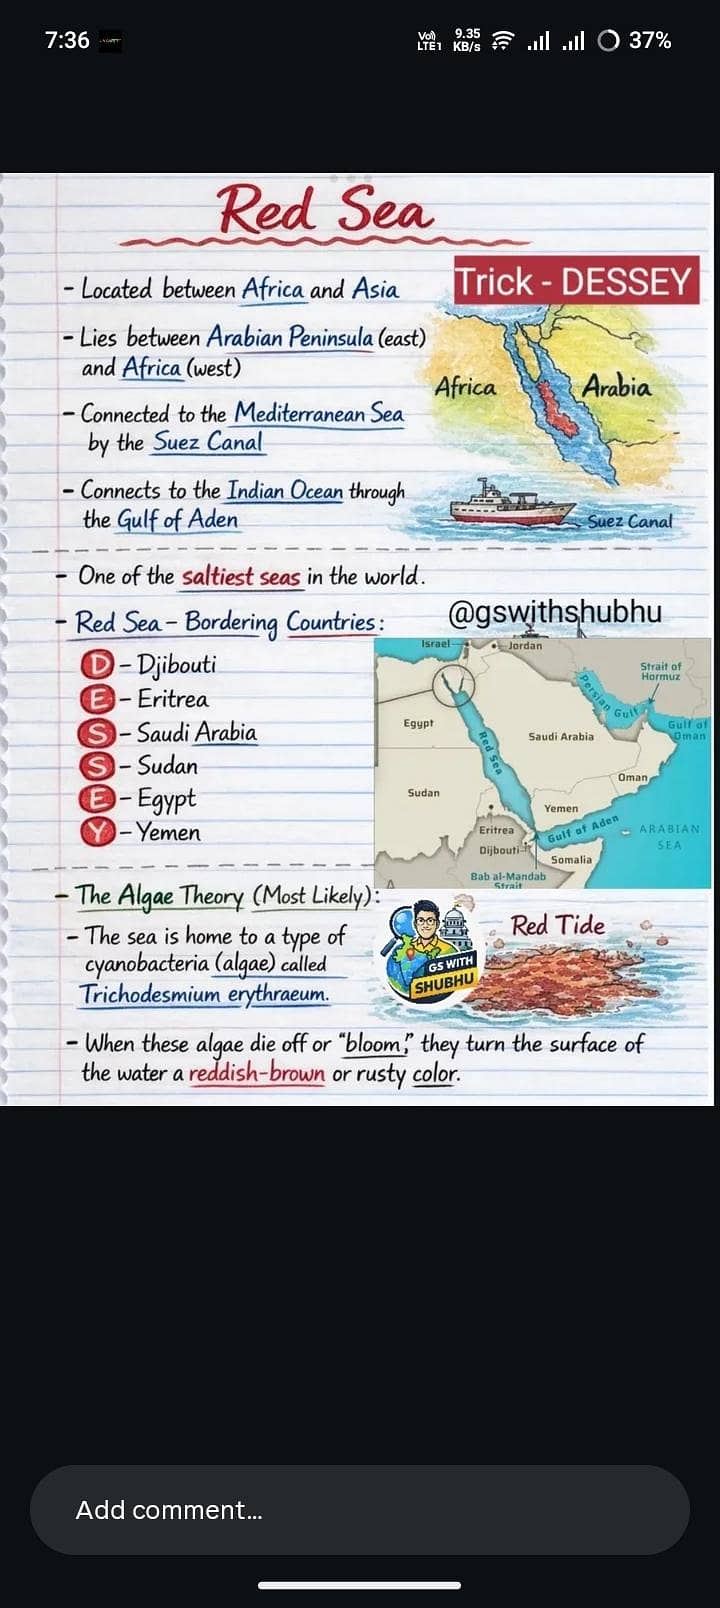 7:36
Vo)) LTE1
9.35 KB/s
37%
Red Sea
Trick - DESSEY
- Located between Africa and Asia
- Lies between Arabian Peninsula (east)
and Africa (west)
- Connected to the Mediterranean Sea
by the Suez Canal
- Connects to the Indian Ocean through
the Gulf of Aden
Africa
Arabia
Suez Canal
- One of the saltiest seas in the world.
- Red Sea - Bordering Countries:
@gswithshubhu
D - Djibouti
E - Eritrea
S - Saudi Arabia
S - Sudan
E - Egypt
Y - Yemen
Israel
Jordan
Strait of
Hormuz
Persian Gulf
Gulf of
Oman
Egypt
Red Sea
Saudi Arabia
Oman
Sudan
Yemen
Eritrea
Gulf of Aden
ARABIAN
SEA
Dijbouti
Somalia
Bab al-Mandab
Strait
- The Algae Theory (Most Likely):
- The sea is home to a type of
cyanobacteria (algae) called
Trichodesmium erythraeum.
GS WITH
SHUBHU
Red Tide
- When these algae die off or “bloom,” they turn the surface of
the water a reddish-brown or rusty color.
Add comment...